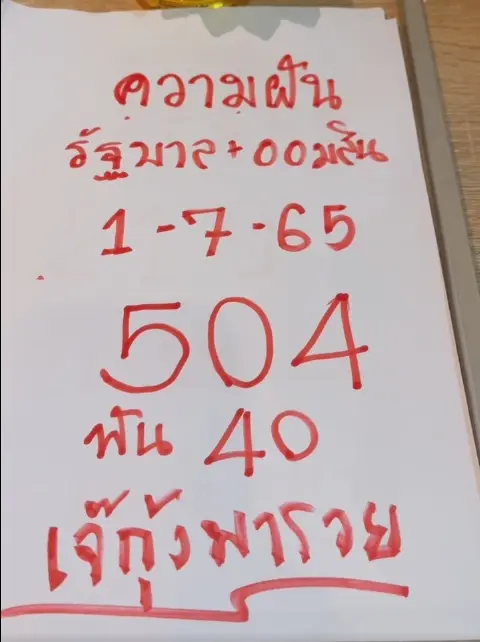 ความฝัน
รัฐบาล+ออมสิน
1-7-65
504
ฟัน 40
เจ๊กุ้งพารวย